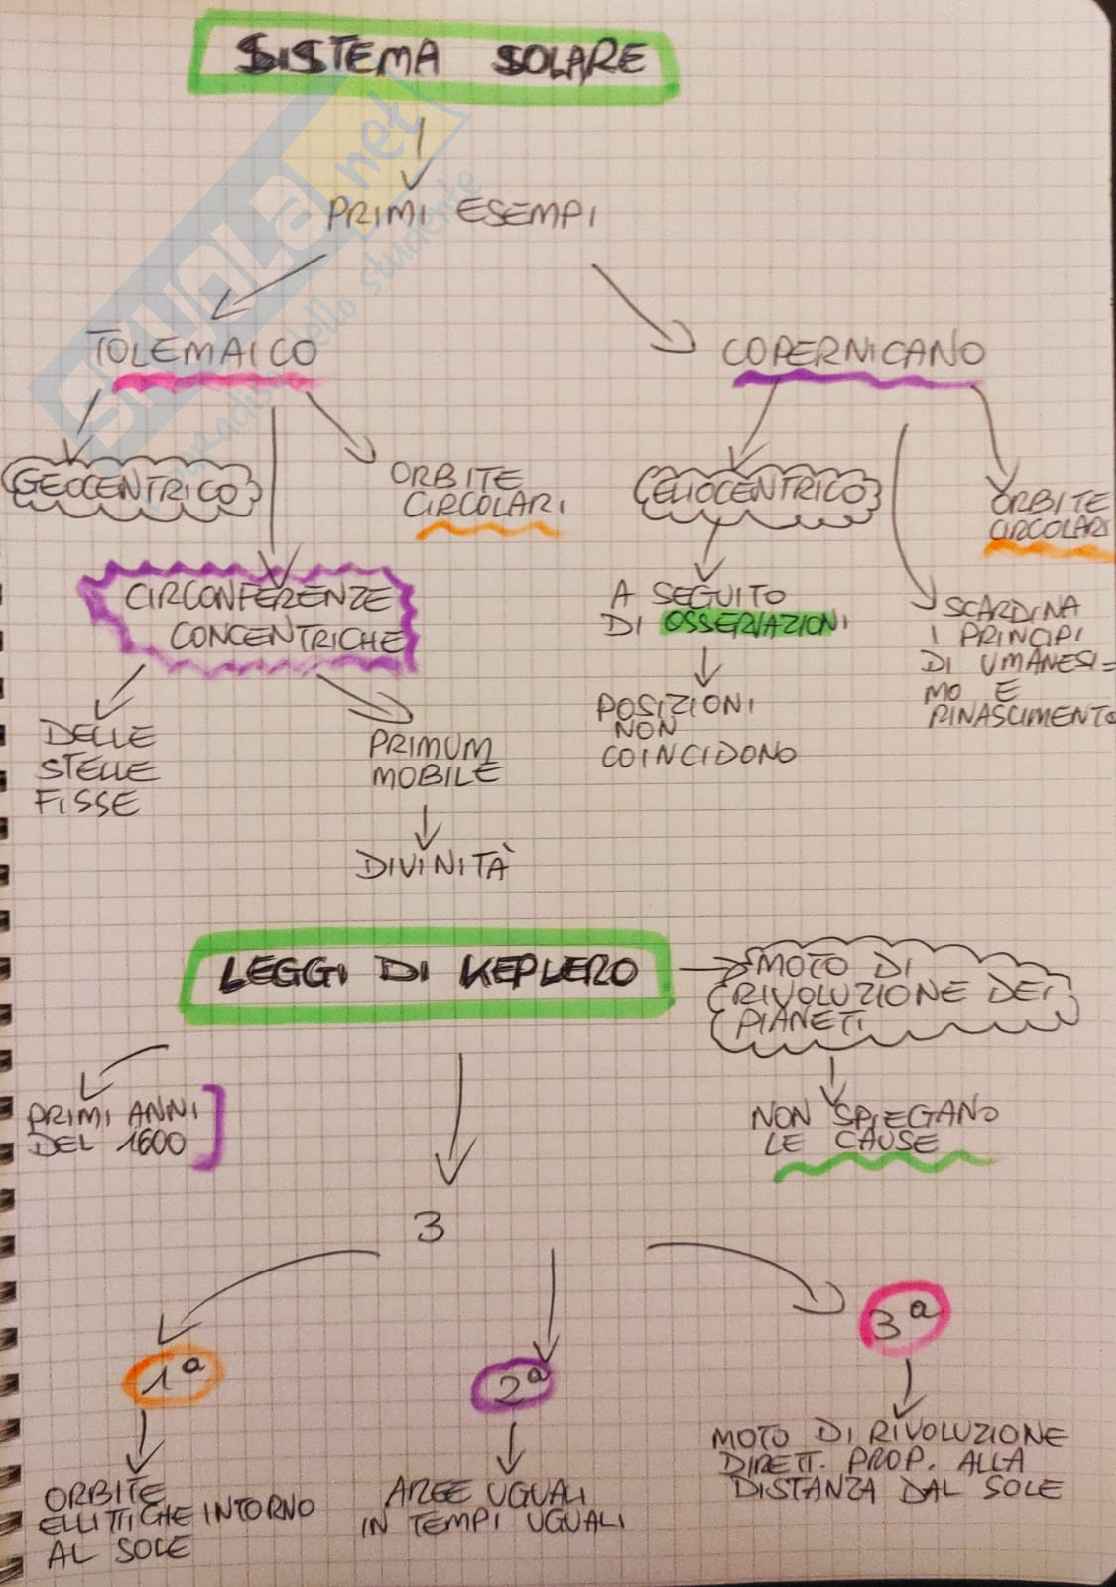 SISTEMA SOLARE
PRIMI ESEMPI
TOLEMAICO
COPERNICANO
GEOCENTRICO
ORBITE
CIRCOLARI
ELIOCENTRICO
ORBITE
CIRCOLARI
CIRCONFERENZE
CONCENTRICHE
A SEGUITO
DI OSSERVAZIONI
SCARDINA
I PRINCIPI
DI UMANESI=
MO E
RINASCIMENTO
DELLE
STELLE
FISSE
PRIMUM
MOBILE
POSIZIONI
NON
COINCIDONO
DIVINITÀ
LEGGI DI KEPLERO
MOTO DI
RIVOLUZIONE DEI
PIANETI
PRIMI ANNI
DEL 1600
NON SPIEGANO
LE CAUSE
3
1ª
2ª
3ª
ORBITE
ELLITTICHE INTORNO
AL SOLE
AREE UGUALI
IN TEMPI UGUALI
MOTO DI RIVOLUZIONE
DIRETT. PROP. ALLA
DISTANZA DAL SOLE
skuola.net